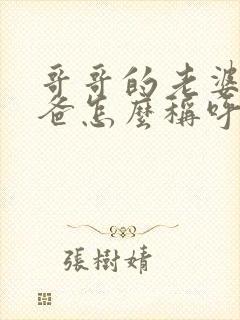 哥哥的老婆
爸怎麼稱呼
張樹婧